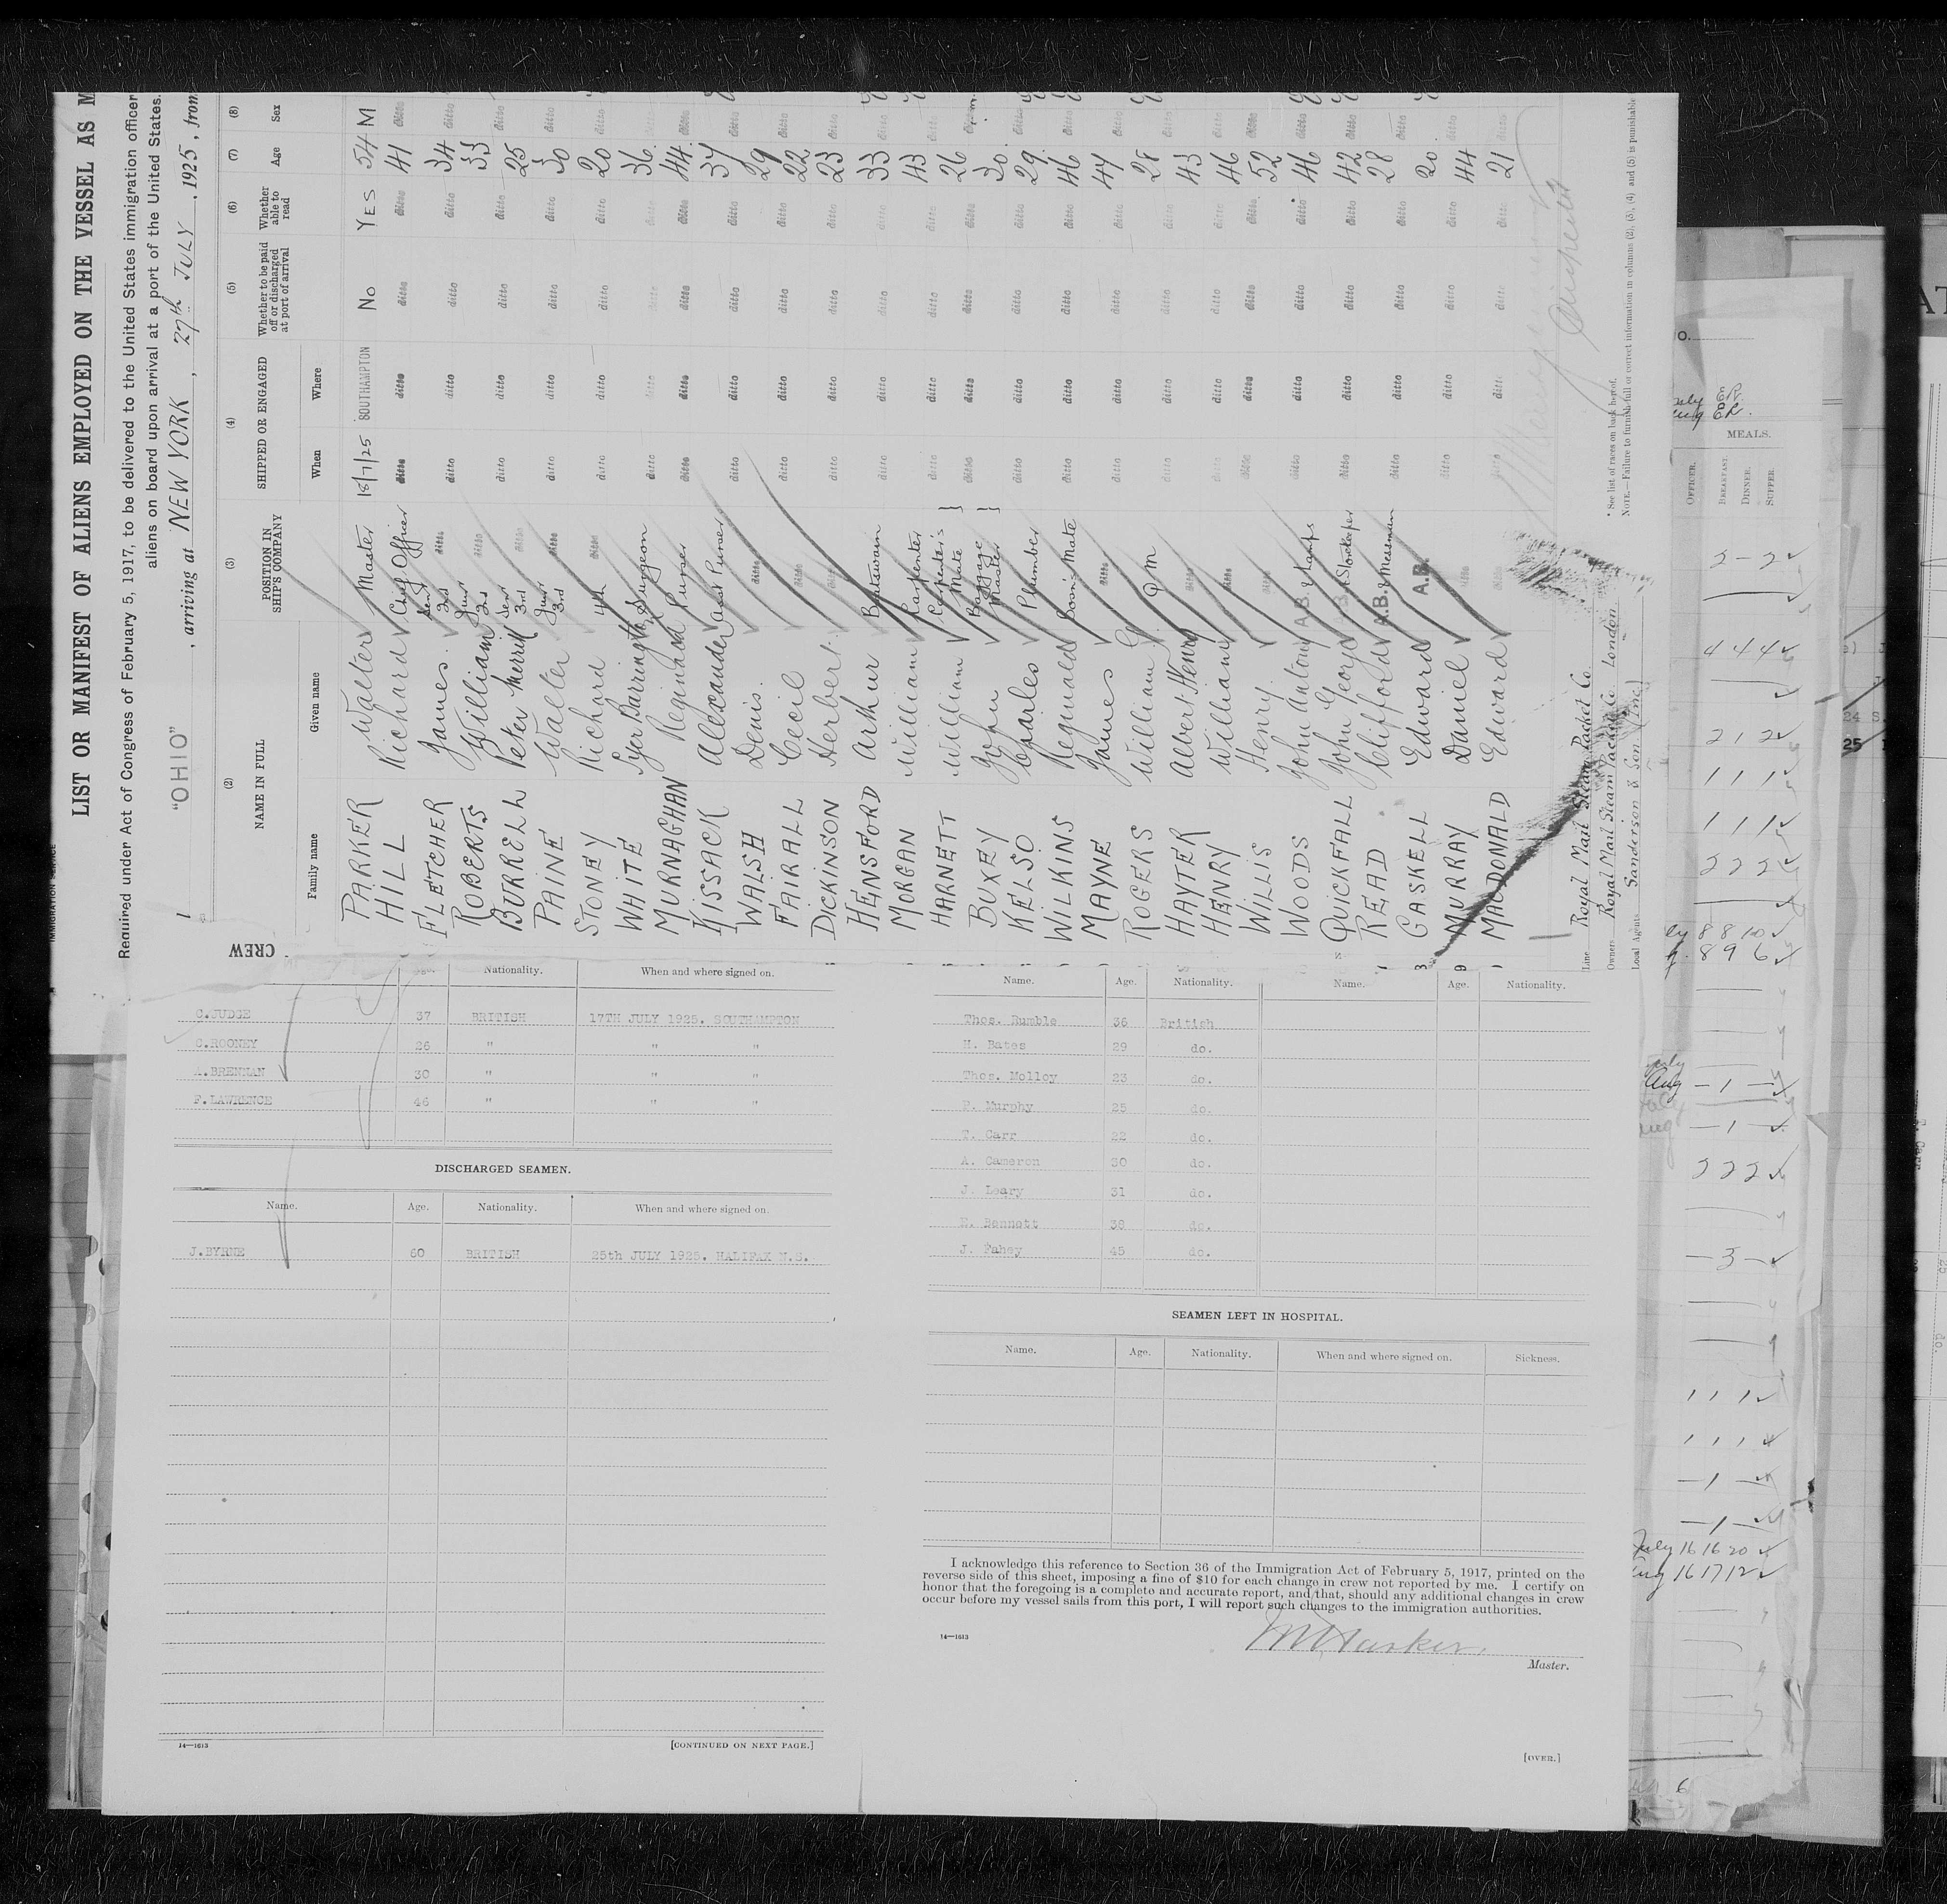 LIST OR MANIFEST OF ALIENS EMPLOYED ON THE VESSEL AS M
Required under Act of Congress of February 5, 1917, to be delivered to the United States immigration officer
aliens on board upon arrival at a port of the United States.
"OHIO" , arriving at NEW YORK , 27th JULY , 1925, from
(2) (3) (4) (5) (6) (7) (8)
NAME IN FULL POSITION IN SHIP'S COMPANY SHIPPED OR ENGAGED Whether to be paid off or discharged at port of arrival Whether able to read Age Sex
Family name Given name When Where
PARKER Walter Master 18/7/25 SOUTHAMPTON No YES 54 M
HILL Richard Chief Officer ditto ditto ditto ditto 41 ditto
FLETCHER James Senr 3rd ditto ditto ditto ditto ditto 34 ditto
ROBERTS William Junr 3rd ditto ditto ditto ditto ditto 33 ditto
BURRELL Peter Merrill Senr 3rd ditto ditto ditto ditto ditto 25 ditto
PAINE Walter Junr 3rd ditto 30
STONEY Richard 4th ditto ditto ditto ditto ditto 20 ditto
WHITE Surgeon ditto ditto ditto ditto 36 ditto
MURNAGHAN Reginald Purser ditto ditto ditto ditto 44 ditto
KISSACK Allexander Asst Purser ditto ditto ditto ditto 37 ditto
WALSH Denis. ditto 29
FAIRALL Cecil ditto ditto ditto ditto ditto 22 ditto
DICKINSON Herbert ditto ditto ditto ditto ditto 23 ditto
HENSFORD Arthur Boatswain ditto ditto ditto ditto 33 ditto
MORGAN William Carpenter ditto ditto ditto ditto 43 ditto
HARNETT William Carpenter's Mate } ditto ditto ditto ditto 26 ditto
BUXEY John Baggage Master } 30
KELSO Charles Plumber ditto ditto ditto ditto 29 ditto
WILKINS Reginald Bosn's Mate ditto ditto ditto ditto 46 ditto
MAYNE James ditto ditto ditto ditto ditto 47 ditto
ROGERS William G. Q M 28
HAYTER Albert Henry ditto ditto ditto ditto ditto 43 ditto
HENRY William ditto ditto ditto ditto ditto 46 ditto
WILLIS Henry. ditto ditto ditto ditto ditto 52 ditto
WOODS John Antony A.B. & Lamps ditto ditto ditto ditto 46 ditto
QUICKFALL John George A.B. & Storekeeper ditto ditto ditto ditto 42 ditto
READ Clifford A.B. & Messman ditto ditto ditto ditto 28 ditto
GASKELL Edward A.B. 20
MURRAY Daniel ditto ditto ditto ditto ditto 44 ditto
MACDONALD Edward ditto ditto ditto ditto ditto 21 ditto
Line Royal Mail Steam Packet Co.
Owners Royal Mail Steam Packet Co. London
Local Agents Sanderson & Son (Inc)
* See list of races on back hereof.
NOTE.—Failure to furnish full or correct information in columns (2), (3), (4) and (5) is punishable
CREW
Nationality. When and where signed on.
C.JUDGE 37 BRITISH 17TH JULY 1925. SOUTHAMPTON
C.ROONEY 26 " " "
A.BRENNAN 30 " " "
F.LAWRENCE 46 " " "
DISCHARGED SEAMEN.
Name. Age. Nationality. When and where signed on.
J.BYRNE 60 BRITISH 25th JULY 1925. HALIFAX N.S.
14—1613 [CONTINUED ON NEXT PAGE.]
Name. Age. Nationality. Name. Age. Nationality.
Thos. Rumble 36 British
H. Bates 29 do.
Thos. Molloy 23 do.
P. Murphy 25 do.
T. Carr 22 do.
A. Cameron 30 do.
J. Leary 31 do.
E. Bennett 38 do.
J. Fahey 45 do.
SEAMEN LEFT IN HOSPITAL.
Name. Age. Nationality. When and where signed on. Sickness.
I acknowledge this reference to Section 36 of the Immigration Act of February 5, 1917, printed on the
reverse side of this sheet, imposing a fine of $10 for each change in crew not reported by me. I certify on
honor that the foregoing is a complete and accurate report, and that, should any additional changes in crew
occur before my vessel sails from this port, I will report such changes to the immigration authorities.
14—1613
Master.
[OVER.]
MEALS.
OFFICER. BREAKFAST. DINNER. SUPPER.
2 – 2
4 4 4
2 1 2
1 1 1
1 1 1
2 2 2
8 8 10
8 9 6
Aug – 1 –
– 1 –
2 2 2
– 3 –
1 1 1
1 1 1
– 1 –
– 1 –
July 16 16 20
Aug 16 17 12